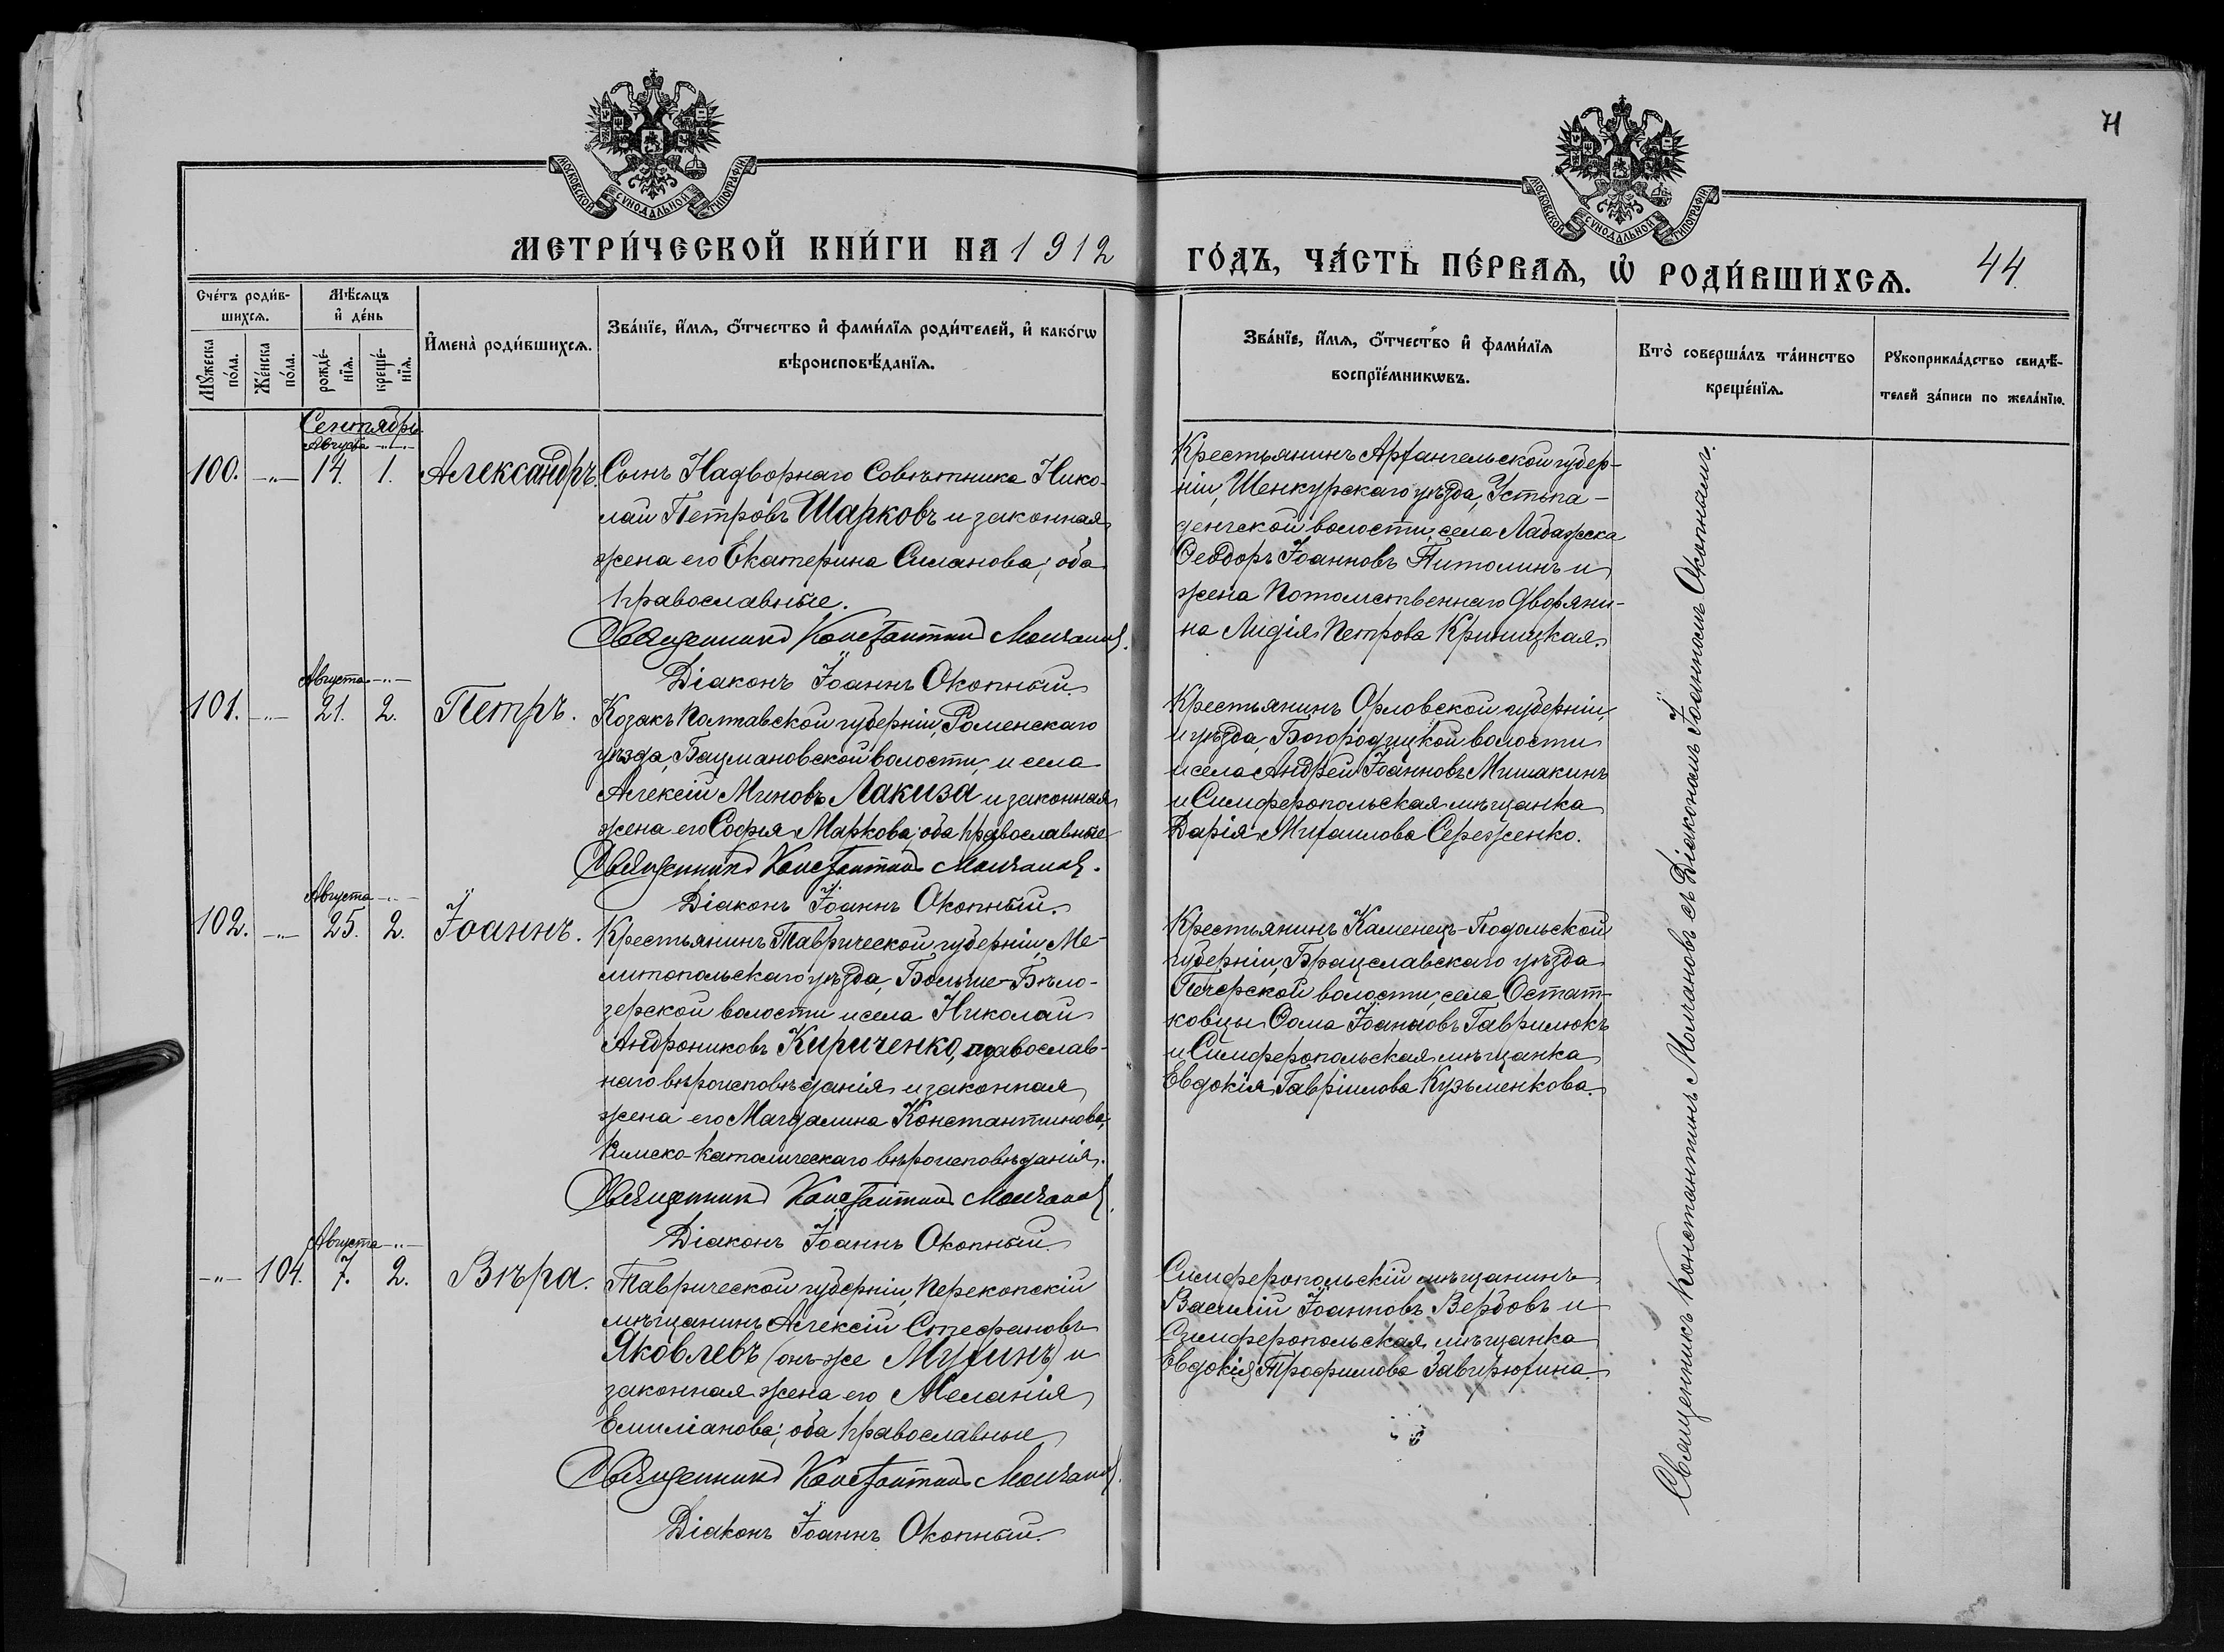 71
МОСКОВСКОЙ СѴНОДАЛЬНОЙ ТИПОГРАФІИ
МОСКОВСКОЙ СѴНОДАЛЬНОЙ ТИПОГРАФІИ
МЕТРИ́ЧЕСКОЙ КНИ́ГИ НА 1912
ГО́ДЪ, ЧА́СТЬ ПЕ́РВАѦ, Ѡ҆ РОДИ́ВШИХСѦ.
44.
Сче́тъ роди́в-
шихсѧ.
Мꙋ́жеска по́ла.
Же́нска по́ла.
Мѣ́сѧцъ
и҆ де́нь
рожде́-нїѧ.
креще́-нїѧ.
И҆мена̀ роди́вшихсѧ.
Зва́нїе, и҆́мѧ, ѻ҆́тчество и҆ фами́лїѧ роди́телей, и҆ како́гѡ
вѣроисповѣ́данїѧ.
Зва́нїе, и҆́мѧ, ѻ҆́тчество и҆ фами́лїѧ
воспрїе́мникѡвъ.
Кто̀ соверша́лъ та́инство
креще́нїѧ.
Рꙋкоприкла́дство свидѣ́-
телей за́писи по жела́нїю.
Сентябрь
Августа -"-
100. -"- 14. 1. Александръ.
Сынъ Надворнаго Совѣтника Нико-
лай Петровъ Шарковъ и законная
жена его Екатерина Силанова; оба
православные.
Священникъ Константинъ Молчановъ.
Діаконъ Іоаннъ Окопный.
Крестьянинъ Архангельской губер-
ніи, Шенкурскаго уѣзда, Устьпа-
денгской волости, села Ладажска
Ѳеодоръ Іоанновъ Питолинъ и
жена Потомственнаго Дворяни-
на Лидія Петрова Криницкая.
Августа -"-
101. -"- 21. 2. Петръ.
Козакъ Полтавской губерніи, Роменскаго
уѣзда, Бацмановской волости, и села
Алексій Миновъ Лакиза и законная
жена его Софья Маркова; оба православные
Священникъ Константинъ Молчановъ.
Діаконъ Іоаннъ Окопный.
Крестьянинъ Орловской губерніи,
и уѣзда, Богородицкой волости
и села Андрей Іоанновъ Мишакинъ
и Симферопольская мѣщанка
Дарія Михаилова Сереженко.
Августа -"-
102. -"- 25. 2. Іоаннъ.
Крестьянинъ Таврической губерніи, Ме-
литопольскаго уѣзда, Больше-Бѣло-
зерской волости и села Николай
Андрониковъ Кириченко, православ-
наго вѣроисповѣданія и законная
жена его Магдалина Константинова,
Римско-католическаго вѣроисповѣданія.
Священникъ Константинъ Молчановъ.
Діаконъ Іоаннъ Окопный.
Крестьянинъ Каменецъ-Подольской
губерніи, Брацславскаго уѣзда
Печерской волости, села Остат-
ковцы Ѳома Іоанновъ Гаврилюкъ
и Симферопольская мѣщанка
Евдокія Гавріилова Кузьменкова.
Августа -"-
-"- 104. 7. 2. Вѣра.
Таврической губерніи, Перекопскій
мѣщанинъ Алексій Стефановъ
Яковлевъ (онъ-же Мухинъ) и
законная жена его Меланія
Емиліанова; оба православные
Священникъ Константинъ Молчановъ.
Діаконъ Іоаннъ Окопный.
Симферопольскій мѣщанинъ
Василій Іоанновъ Вербовъ и
Симферопольская мѣщанка
Евдокія Трофимова Завирюхина.
Священникъ Константинъ Молчановъ съ Діакономъ Іоанномъ Окопнымъ.